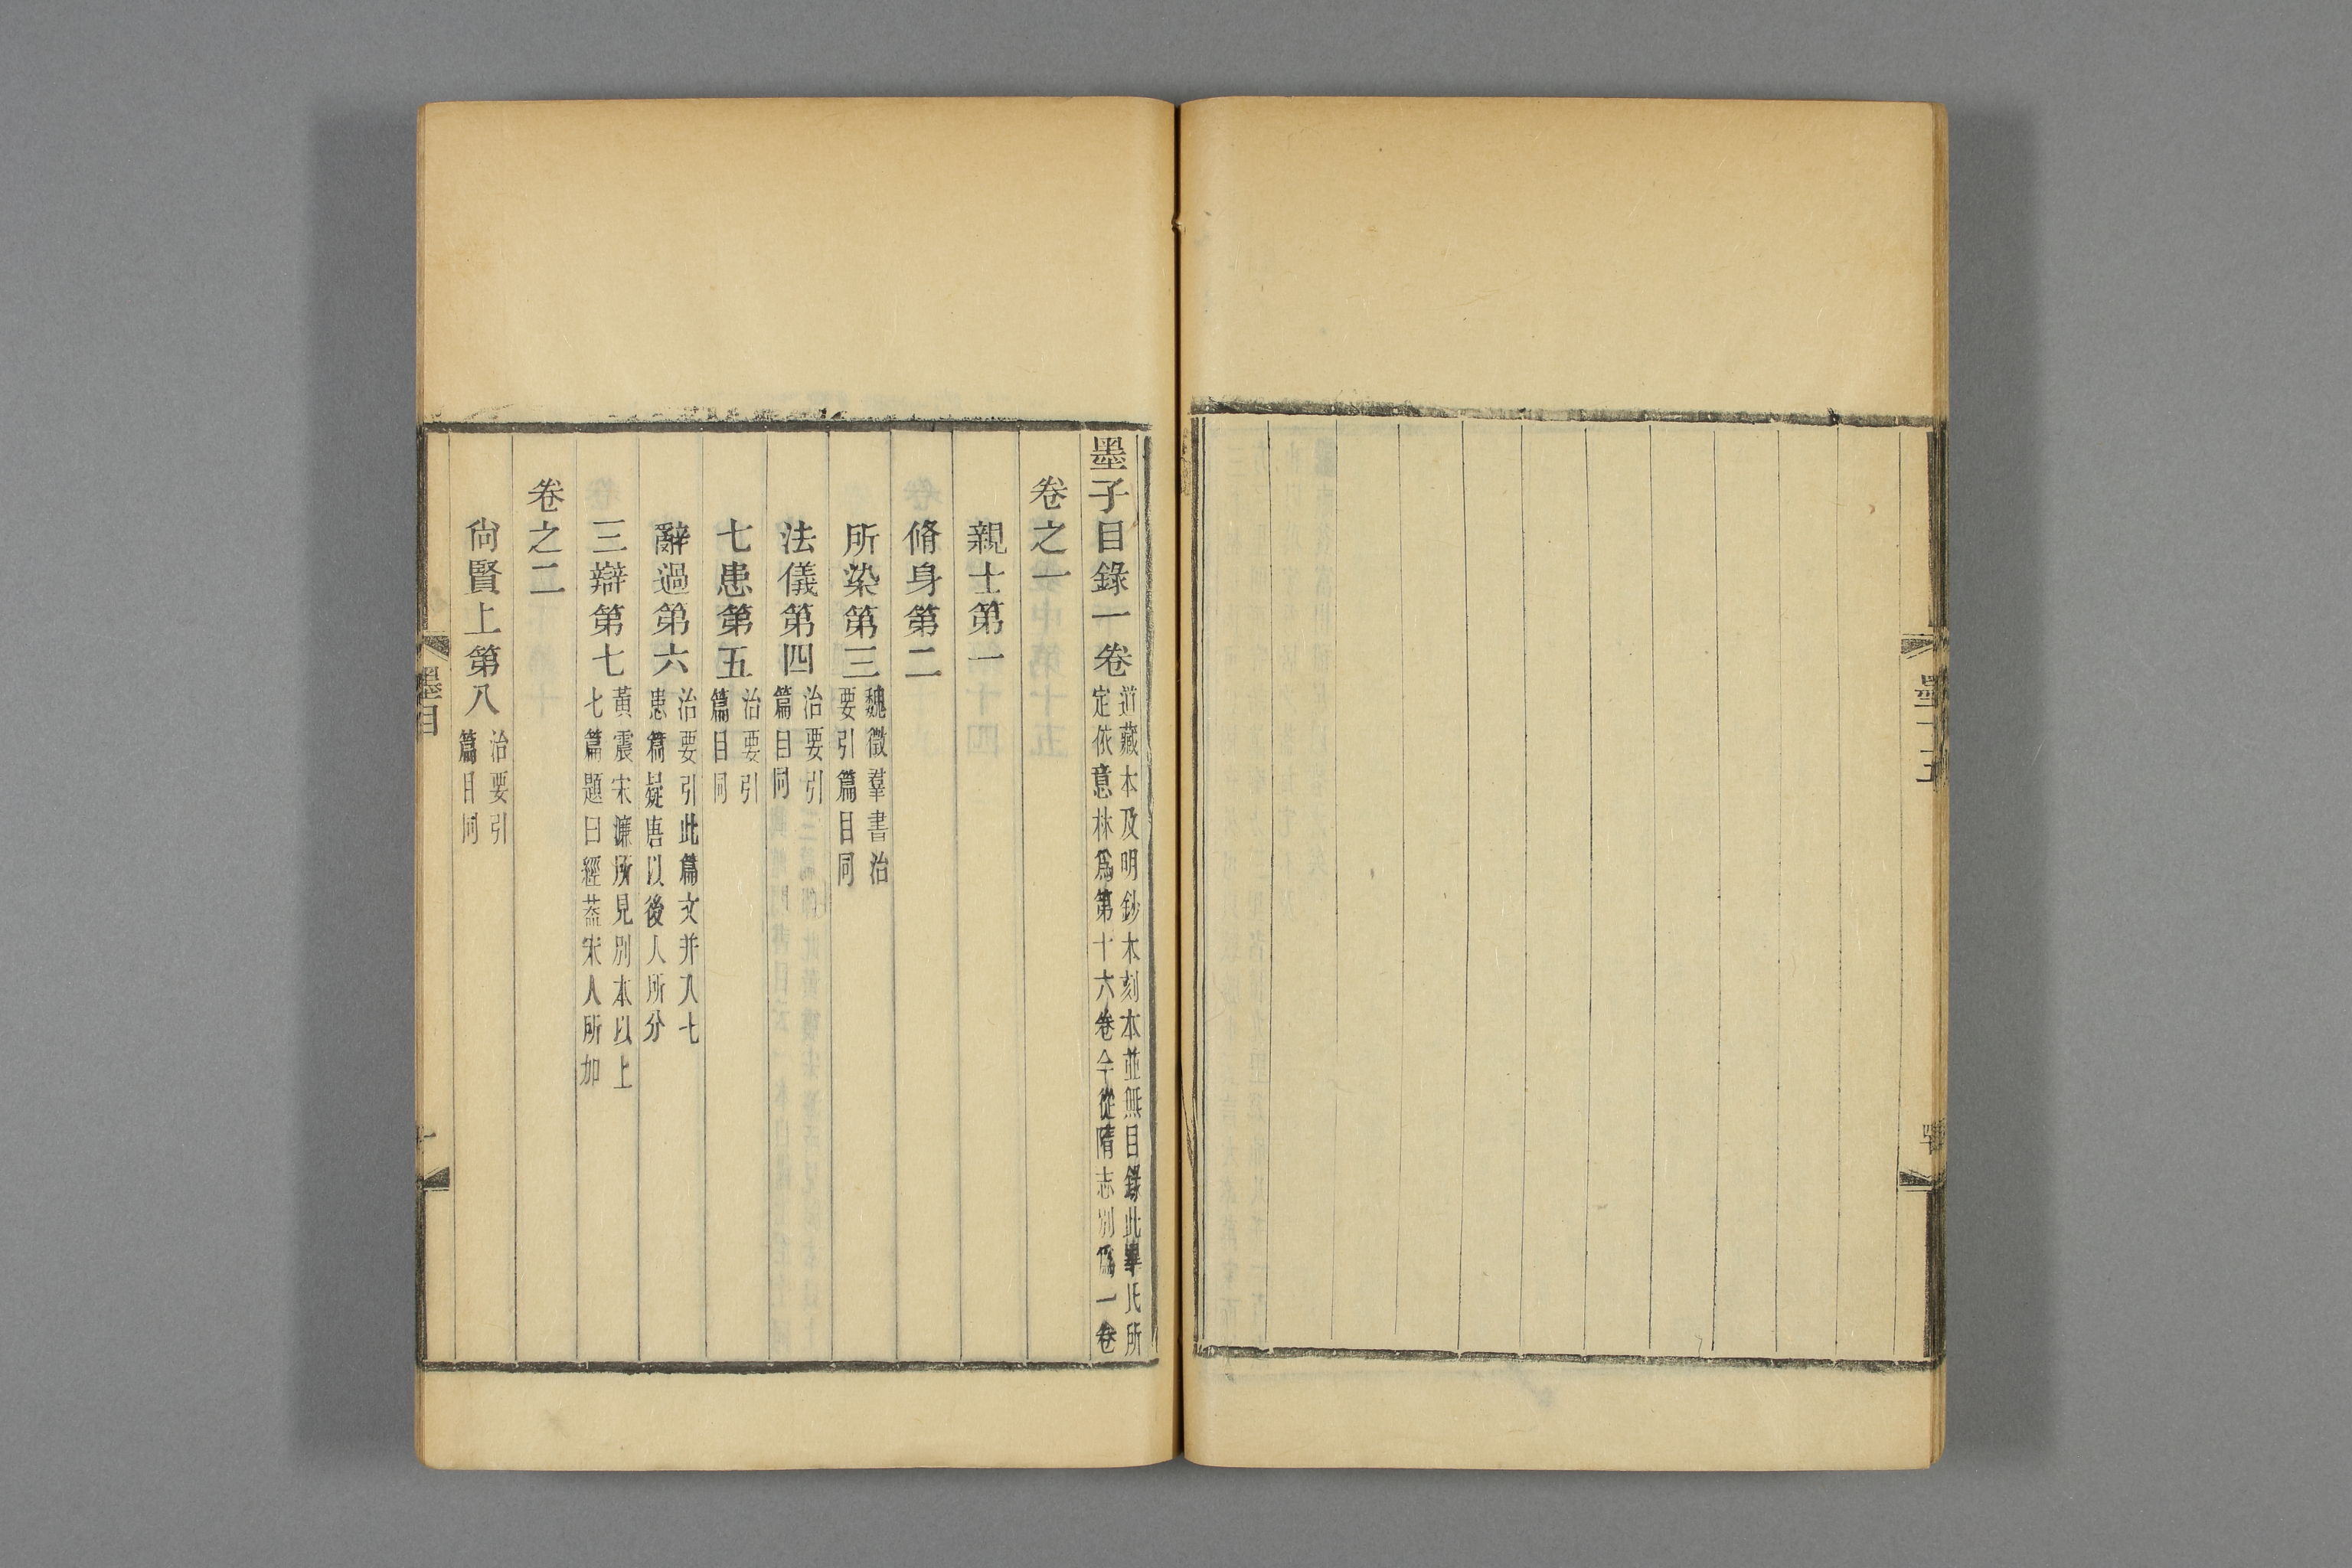 墨子目錄一卷 道藏本及明鈔本刻本並無目錄此畢氏所定依意林爲第十六卷今從隋志別爲一卷
卷之一
親士第一
脩身第二
所染第三 魏徵羣書治要引篇目同
法儀第四 治要引篇目同
七患第五 治要引篇目同
辭過第六 治要引此篇文并入七患篇疑唐以後人所分
三辯第七 黃震宋濂所見別本以上七篇題曰經葢宋人所加
卷之二
尙賢上第八 治要引篇目同
墨目
一